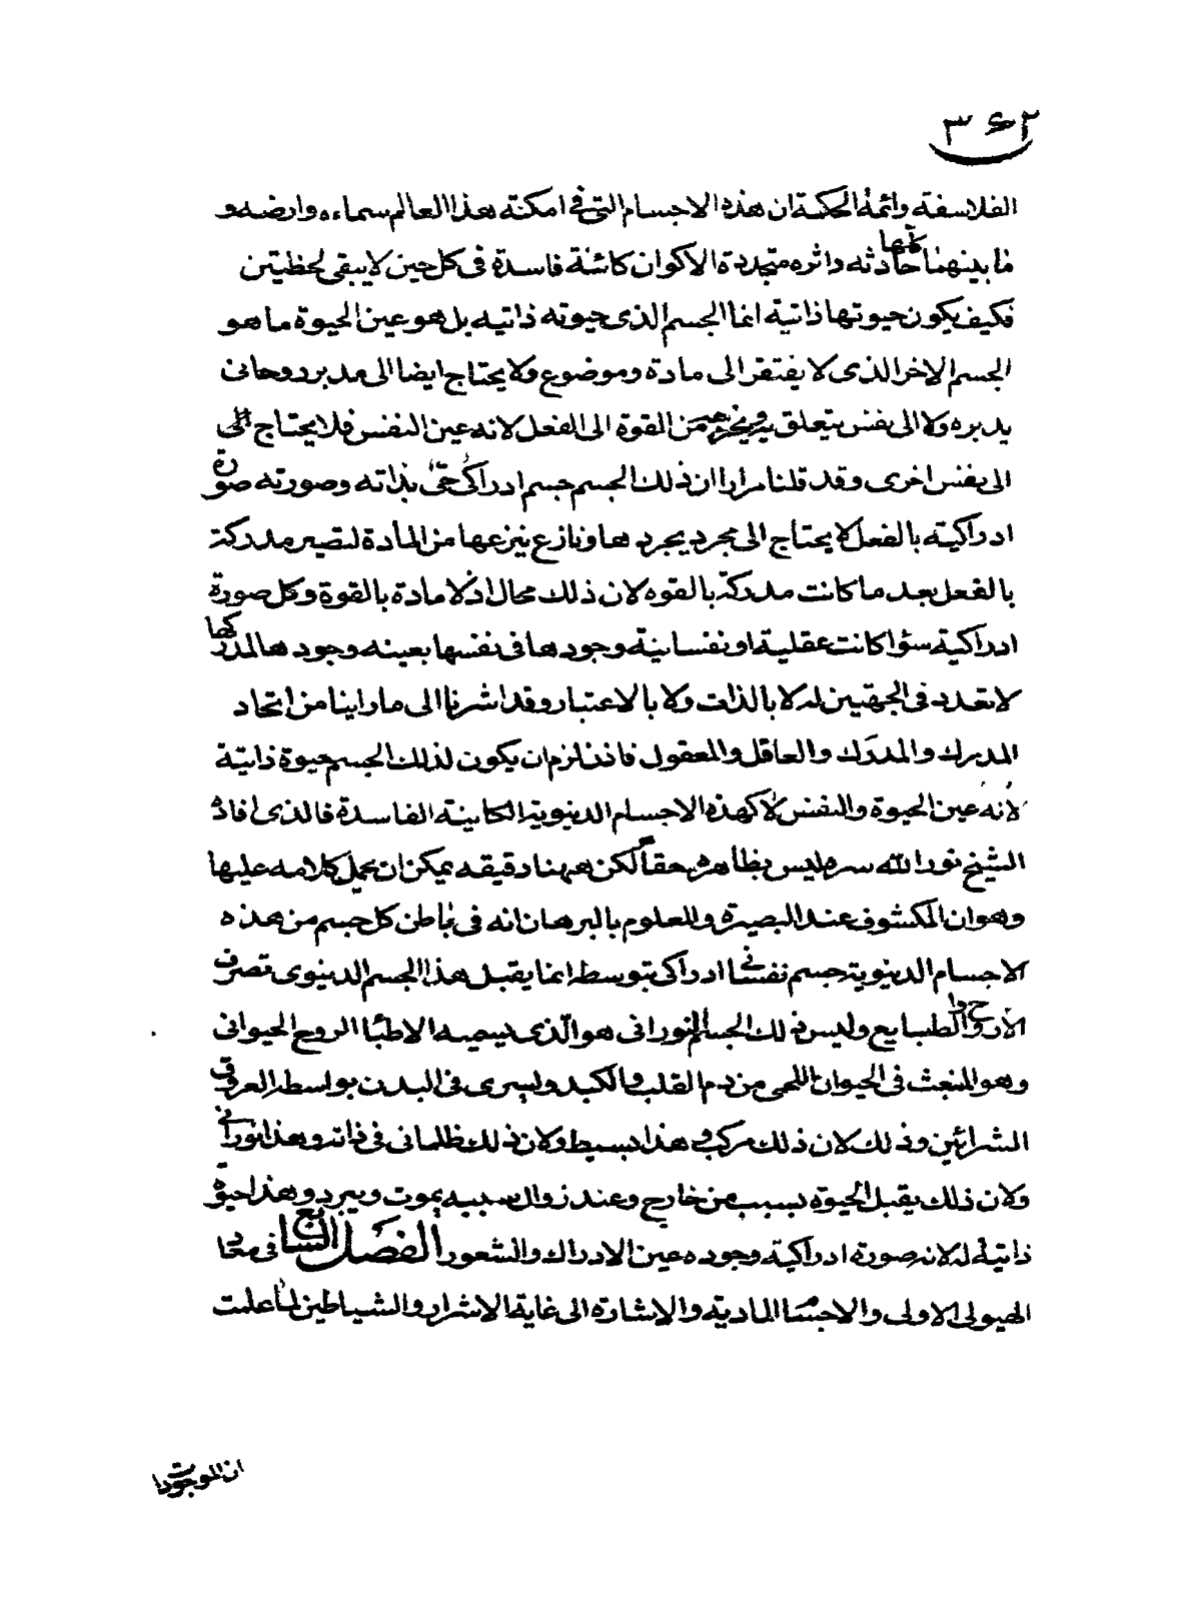 ٣٤٢
الفلاسفة وائمة الحكمة ان هذه الاجسام التى فى امكنة هذا العالم سماءه وارضه و
ما بينهما كلها حادثه داثره متجددة الاكوان كائنة فاسدة فى كل حين لا يبقى لحظتين
فكيف يكون حيوتها ذاتية انما الجسم الذى حيوته ذاتيه بل هو عين الحيوة ما هو
الجسم الاخر الذى لا يفتقر الى مادة وموضوع ولا يحتاج ايضا الى مدبر روحانى
يدبره ولا الى نفس يتعلق به ويخرجه من القوة الى الفعل لانه عين النفس فلا يحتاج الى
الى نفس اخرى وقد قلنا مرارا ان ذلك الجسم جسم ادراكى حىّ بذاته وصورته صورة
ادراكية بالفعل لا يحتاج الى مجرد يجردها ونازع ينزعها من المادة لتصير مدركة
بالفعل بعد ما كانت مدركة بالقوه لان ذلك محال اذ لا مادة بالقوة وكل صورة
ادراكية سوٓا كانت عقلية او نفسانية وجودها فى نفسها بعينه وجودها لمدركها
لا تعدد فى الجهتين له لا بالذات ولا بالاعتبار وقد اشرنا الى ما راينا من اتحاد
المدرك والمدرَك والعاقل والمعقول فاذن لزم ان يكون لذلك الجسم حيوة ذاتية
لانه عين الحيوة والنفس لا كهذه الاجسام الدنيوية الكاينة الفاسدة فالذى افاده
الشيخ نور الله سره ليس بظاهره حقاً لكن ههنا دقيقه يمكن ان يحمل كلامه عليها
وهو ان المكشوف عند البصيرة والمعلوم بالبرهان انه فى باطن كل جسم من هذه
الاجسام الدنيوية جسم نفسانى ادراكى بتوسطه انما يقبل هذا الجسم الدنيوى تصرف
الارواح والطبايع وليس ذلك الجسم النورانى هو الّذى يسميه الاطبّا الروح الحيوانى
وهو المنبعث فى الحيوان اللحمى من دم القلب والكبد ويسرى فى البدن بواسطة العروق
الشرائين وذلك لان ذلك مركب وهذا بسيط ولان ذلك ظلمانى فى ذاته وهذا نورانى
ولان ذلك يقبل الحيوة بسبب من خارج وعند زوال سببه يموت ويبرد وهذا حيوة
ذاتية له لانه صورة ادراكية وجوده عين الادراك والشعور الفصل السابع فى معاد
الهيولى الاولى والاجسام المادية والاشارة الى غاية الاشرار والشياطين لما علمت
ان الموجودا